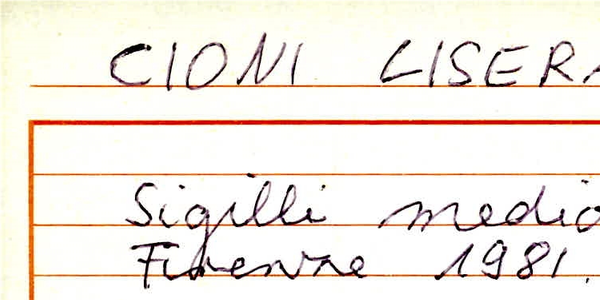 CIONI LISERA
Sigilli medio
Firenze 1981.